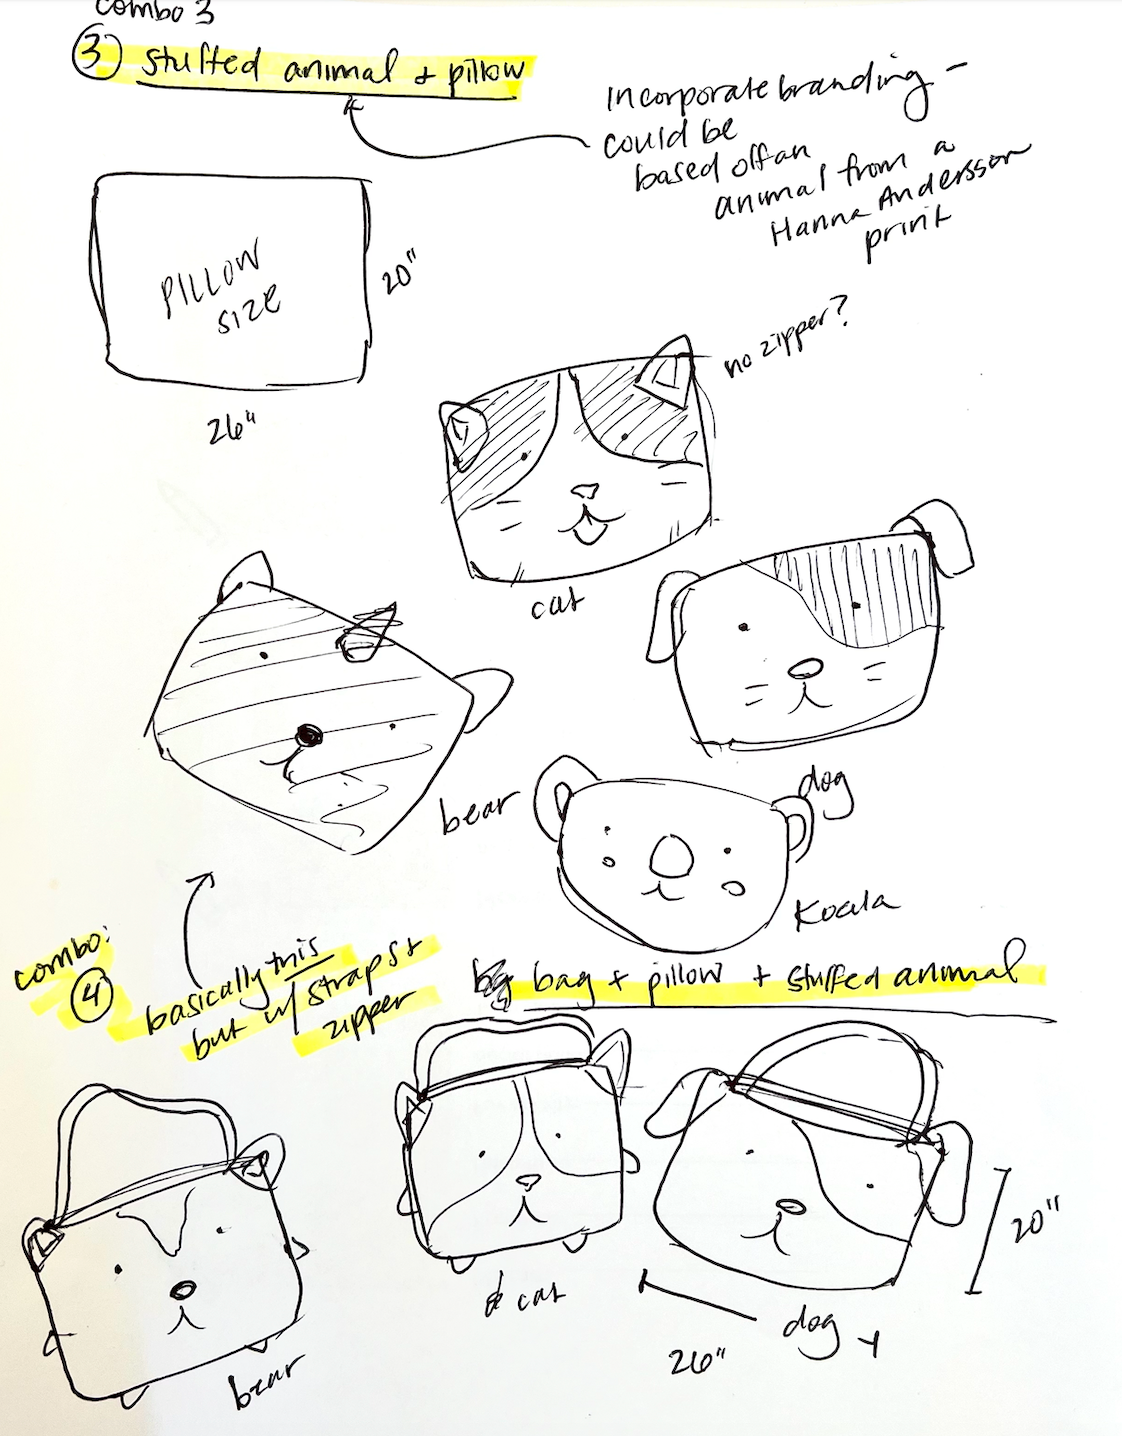 combo 3
③ stuffed animal + pillow
incorporate branding -
could be
based off an
animal from a
Hanna Andersson
print
PILLOW
SIZE
20"
26"
no zipper?
cat
bear
dog
Koala
combo:
④
basically this
but w/ straps +
zipper
bag + pillow + stuffed animal
bear
cat
dog
20"
26"